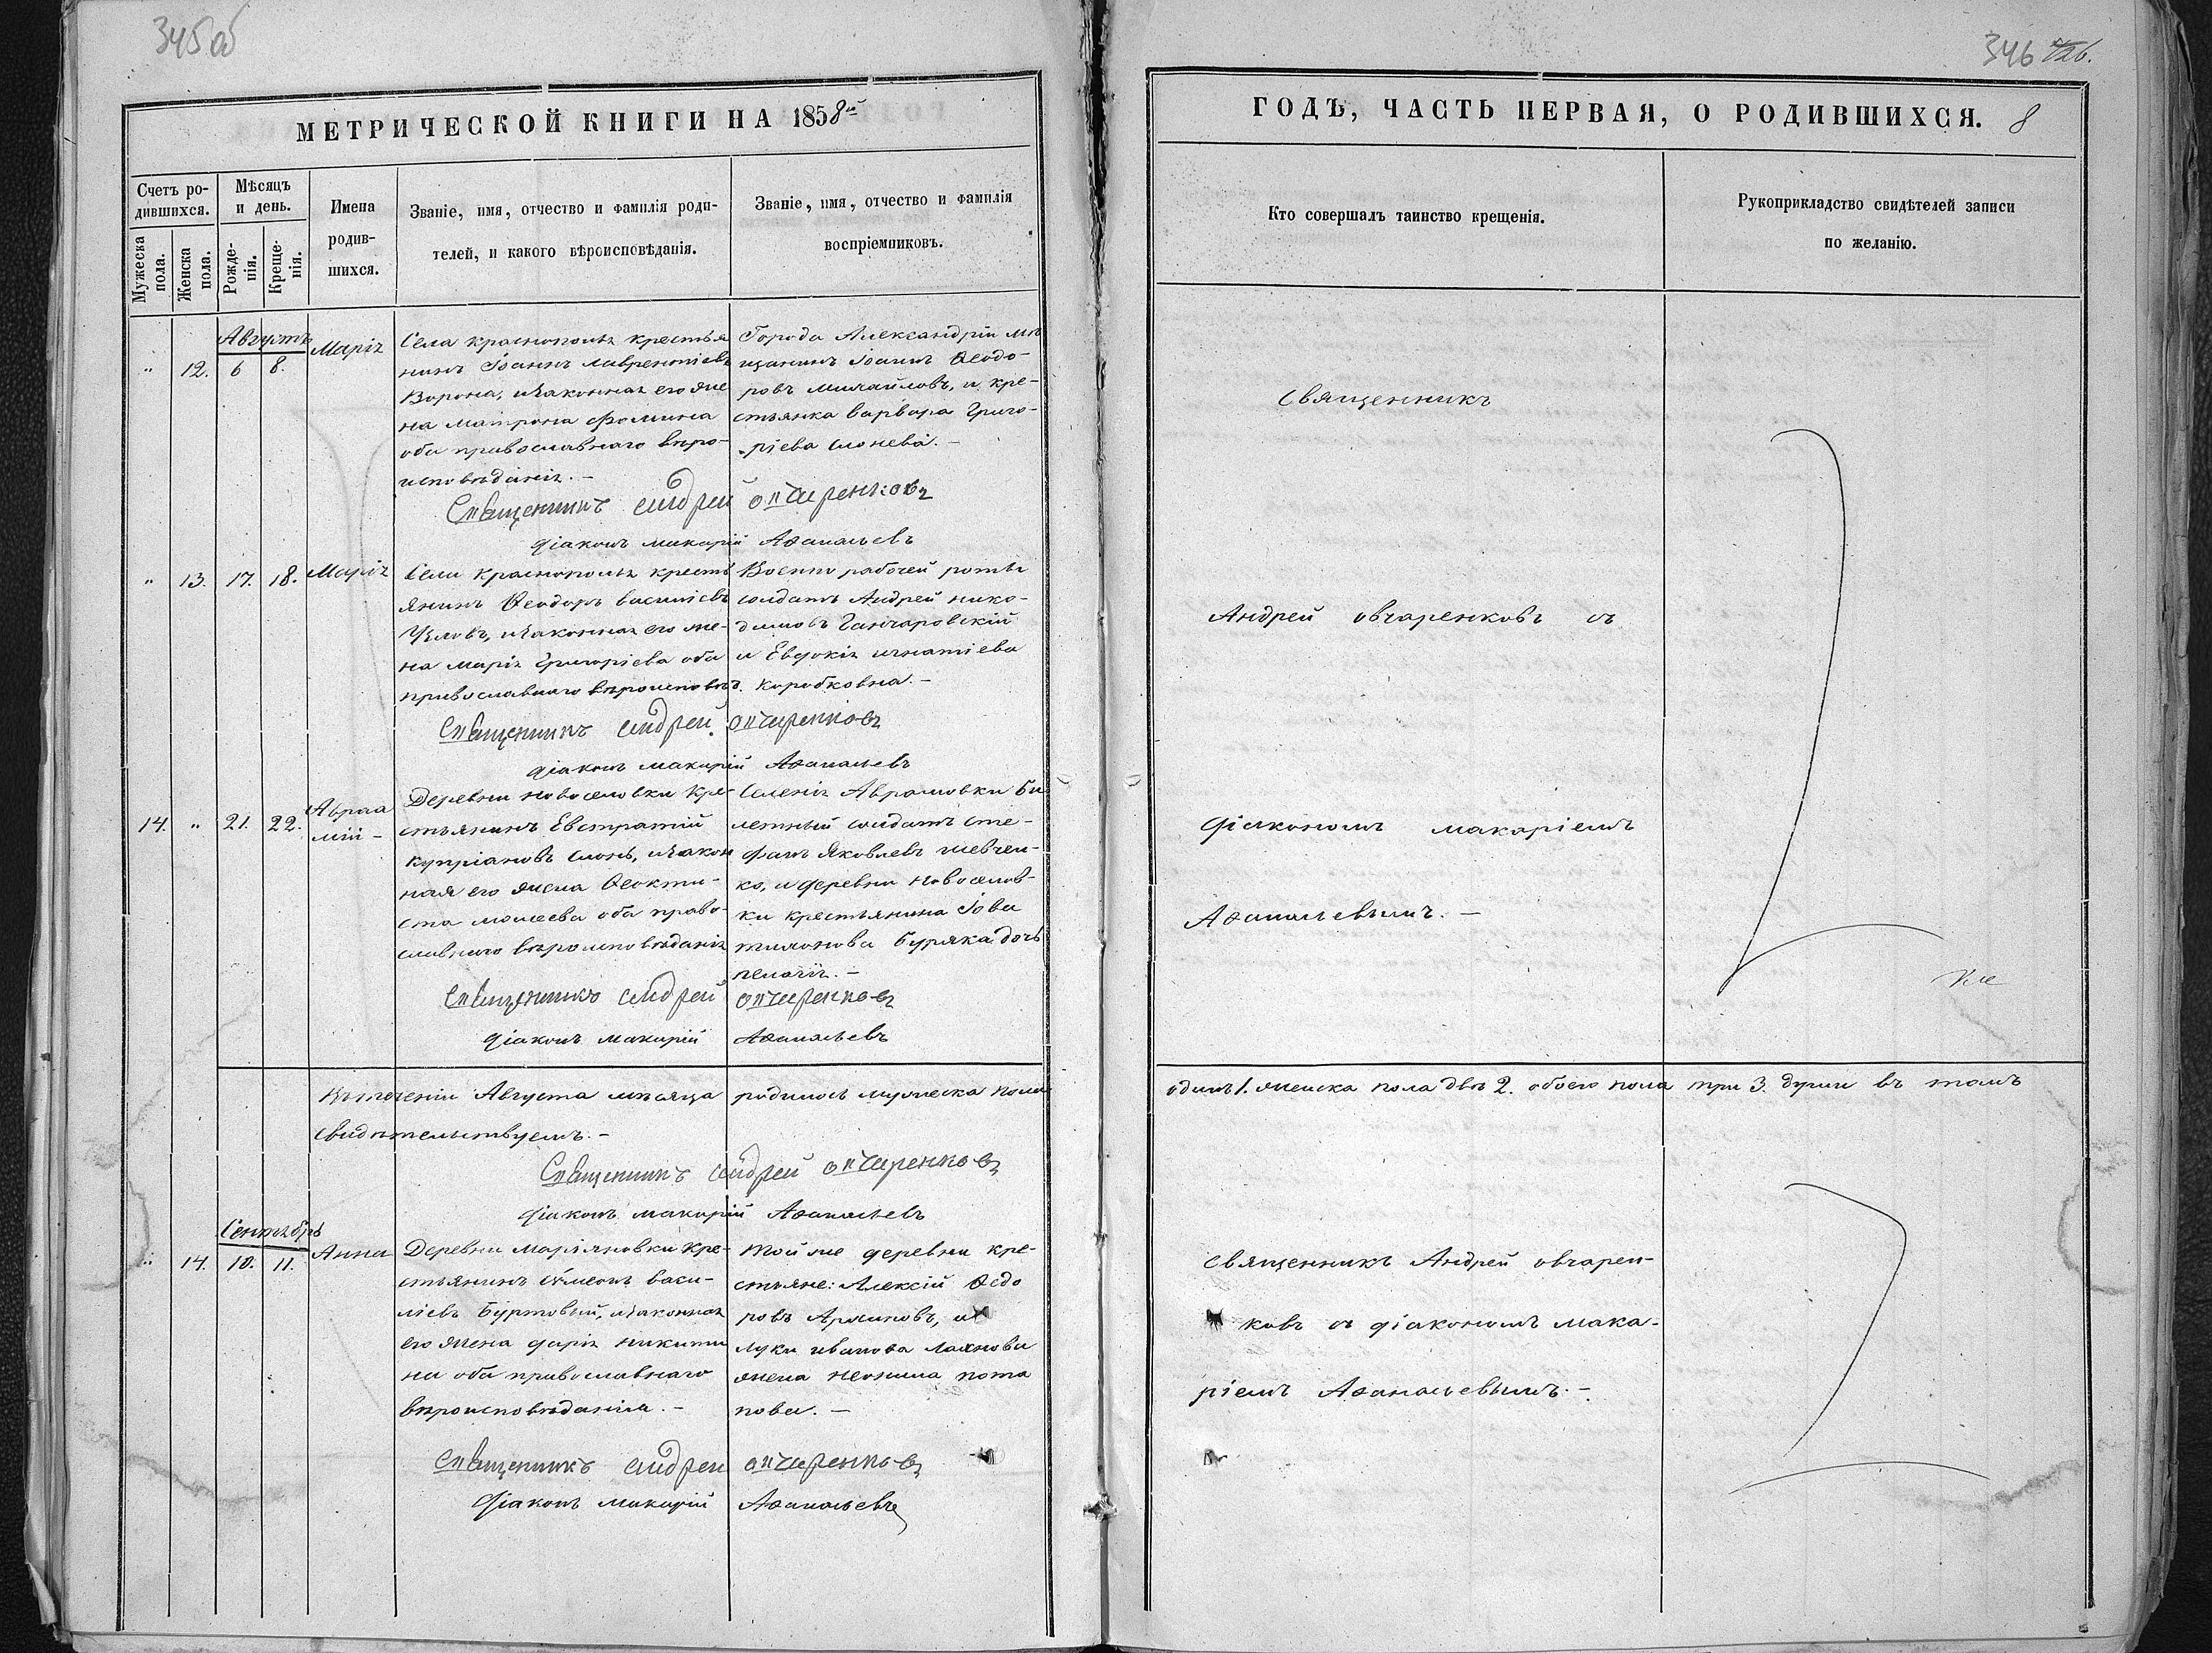 345 об
346
МЕТРИЧЕСКОЙ КНИГИ НА 1858й
ГОДЪ, ЧАСТЬ ПЕРВАЯ, О РОДИВШИХСЯ. 8
Счетъ ро-
дившихся.
Мужеска
пола.
Женска
пола.
Мѣсяцъ
и день.
Рожде-
нія.
Креще-
нія.
Имена
родив-
шихся.
Званіе, имя, отчество и фамилія роди-
телей, и какого вѣроисповѣданія.
Званіе, имя, отчество и фамилія
воспріемниковъ.
Кто совершалъ таинство крещенія.
Рукоприкладство свидѣтелей записи
по желанію.
Августъ
„ 12. 6 8.
Марія
Села краснополья крестья
нинъ Іоаннъ лаврентіевъ
Ворона, и законная его же
на Матрона Фомина
оба православнаго вѣро-
исповѣданія. –
Города Александріи мѣ
щанинъ Іоаннъ Ѳеодо-
ровъ михайловъ, и кре-
стьянка варвара Григо-
ріева
Священникъ андрей овчаренковъ
діаконъ макарій Аѳанасьевъ
„ 13. 17. 18.
Марія
Села краснополья кресть
янинъ Ѳеодоръ василіевъ
и законная его же-
на марія григоріева оба
православнаго вѣроисповѣд.
Военно рабочей роты
солдатъ Андрей нико-
димовъ Ганчаровскій
и Евдокія игнатіева
коробковна. –
Священникъ андрей овчаренковъ
діаконъ макарій Аѳанасьевъ
14. „ 21. 22.
Авраа
мій –
Деревни новоселовки кре-
стьянинъ Евстратій
купріановъ слонь, и закон
ная его жена Ѳеокти-
ста моисеева оба право-
славнаго вѣроисповѣданія
Селенія Аврамовки би
летный солдатъ сте-
фанъ Яковлевъ шевчен-
ко, и деревни новоселов-
ки крестьянина Іова
тихонова буряка дочь
пелагія. –
Священникъ андрей овчаренковъ
діаконъ макарій Аѳанасьевъ
Священникъ
Андрей овчаренковъ съ
діакономъ макаріемъ
Аѳанасьевымъ. –
Въ теченіи Августа мѣсяца родилось мужеска пола
одинъ 1. женска пола двѣ 2. обоего пола три 3. души въ томъ
свидѣтельствуемъ. –
Священникъ андрей овчаренковъ
діаконъ макарій Аѳанасьевъ
Сентябрь
„ 14. 10. 11.
Анна
Деревни маріяновки кре-
стьянинъ сѵмеонъ васи-
ліевъ Буртовый, и законная
его жена дарія никити
на оба православнаго
вѣроисповѣданія. –
Той же деревни кре-
стьяне: Алексій Ѳедо
ровъ и
луки иванова
жена неонила пота
пова. –
Священникъ андрей овчаренковъ
діаконъ макарій Аѳанасьевъ
священникъ Андрей овчарен-
ковъ съ діакономъ мака-
ріемъ Аѳанасьевымъ. –